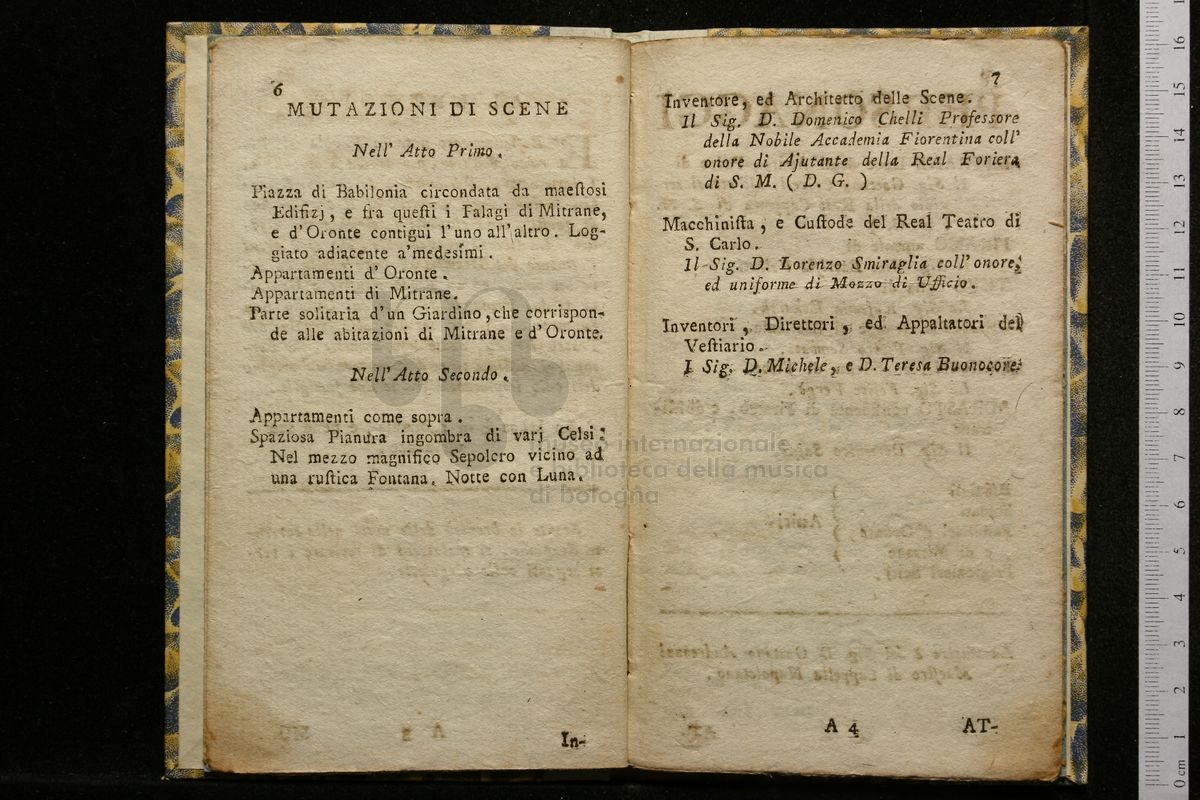 6
MUTAZIONI DI SCENE
Nell' Atto Primo.
Piazza di Babilonia circondata da maeſtosi
Edifizj, e fra queſti i Palagi di Mitrane,
e d'Oronte contigui l'uno all'altro. Log-
giato adiacente a'medesimi.
Appartamenti d'Oronte.
Appartamenti di Mitrane.
Parte solitaria d'un Giardino, che corrispon-
de alle abitazioni di Mitrane e d'Oronte.
Nell'Atto Secondo.
Appartamenti come sopra.
Spaziosa Pianura ingombra di varj Celsi.
Nel mezzo magnifico Sepolcro vicino ad
una ruſtica Fontana. Notte con Luna.
In-
7
Inventore, ed Architetto delle Scene.
Il Sig. D. Domenico Chelli Professore
della Nobile Accademia Fiorentina coll'
onore di Ajutante della Real Foriera
di S. M. ( D. G. )
Macchiniſta, e Cuſtode del Real Teatro di
S. Carlo.
Il Sig. D. Lorenzo Smiraglia coll'onore,
ed uniforme di Mozzo di Ufficio.
Inventori, Direttori, ed Appaltatori del
Veſtiario.
I Sig. D. Michele, e D. Teresa Buonocore.
A 4
AT-
museo internazionale
e biblioteca della musica
di bologna
0 cm 1 2 3 4 5 6 7 8 9 10 11 12 13 14 15 16